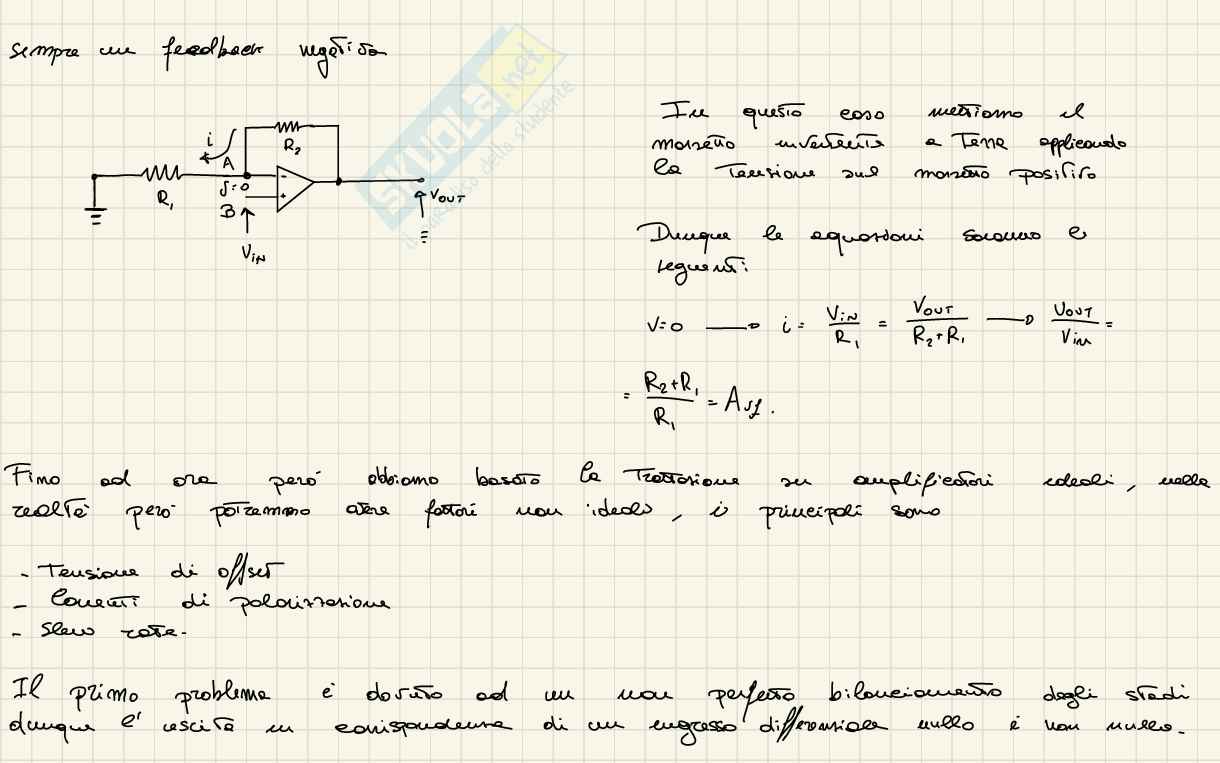 sempre un feedback negativo
SKUOLA.net
il paradiso dello studente
i
A
R2
R1
v=0
B
-
+
VOUT
VIN
In questo caso mettiamo il
morsetto invertente a Terra applicando
la Tensione sul morsetto positivo
Dunque le equazioni saranno le
seguenti:
V=0 → i = VIN/R1 = VOUT/(R2+R1) → VOUT/Vin =
= (R2+R1)/R1 = Avf.
Fino ad ora però abbiamo basato la Trattazione su amplificatori ideali, nella
realtà però potremmo avere fattori non ideali, i principali sono
- Tensione di offset
- Correnti di polarizzazione
- Slew rate.
Il primo problema è dovuto ad un non perfetto bilanciamento degli stadi
dunque l'uscita in corrispondenza di un ingresso differenziale nullo è non nullo.